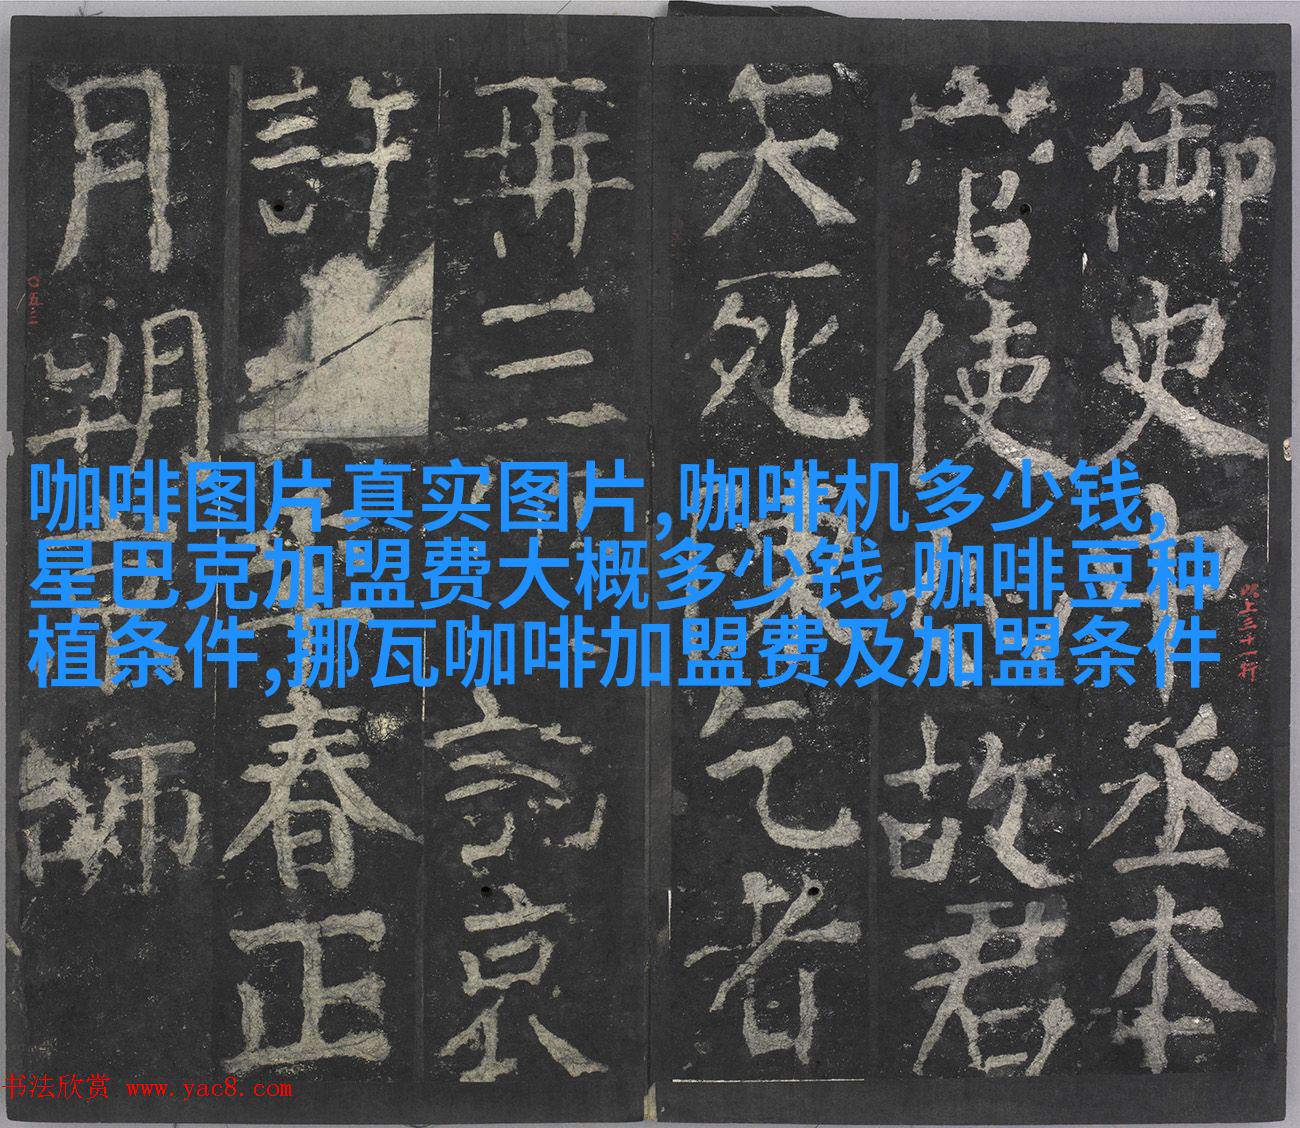 御史中丞本
嘗使
故君
天死
乞者
再三
京
許
春正
月朔
師
以上三十一行
〇五三
咖啡图片真实图片,咖啡机多少钱,
星巴克加盟费大概多少钱,咖啡豆种
植条件,挪瓦咖啡加盟费及加盟条件
书法欣赏 www.yac8.com